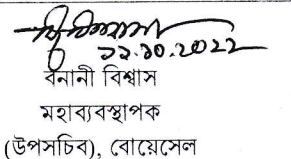 ১২.১০.২০২২
বনানী বিশ্বাস
মহাব্যবস্থাপক
(উপসচিব), বোয়েসেল